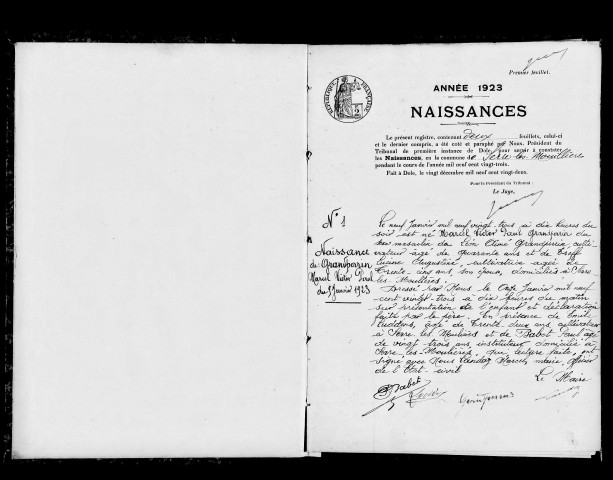 Premier feuillet.
RÉPUBLIQUE FRANÇAISE
ANNÉE 1923
NAISSANCES
Le présent registre, contenant deux feuillets, celui-ci
et le dernier compris, a été coté et paraphé par Nous, Président du
Tribunal de première instance de Dole, pour servir à constater
les Naissances, en la commune de Serre-les-Moulières
pendant le cours de l'année mil neuf cent vingt-trois.
Fait à Dole, le vingt décembre mil neuf cent vingt-deux.
Pour le Président du Tribunal :
Le Juge,
N° 1
Naissance
de Grandperrin
Marcel Victor Paul
du 9 Janvier 1923
Le neuf Janvier mil neuf vingt trois à dix heures du
soir est né Marcel Victor Paul Grandperrin du
sexe masculin de Léon Aimé Grandperrin, culti-
vateur âgé de quarante ans et de
Augustine, cultivatrice agée de
trente cinq ans, son épouse, domiciliés à Serre
les Moulières.
Dressé par Nous le onze Janvier mil neuf
cent vingt-trois à dix heures du matin
sur présentation de l'enfant et déclaration
faite par le père. En présence de
âgé de trente deux ans cultivateur
à Serre les Moulières et de Babet
de vingt trois ans, instituteur domicilié à
Serre-les-Moulières, que lecture faite, ont
signé avec Nous Marcel, maire, officier
de l'Etat-civil
Le Maire
Babet